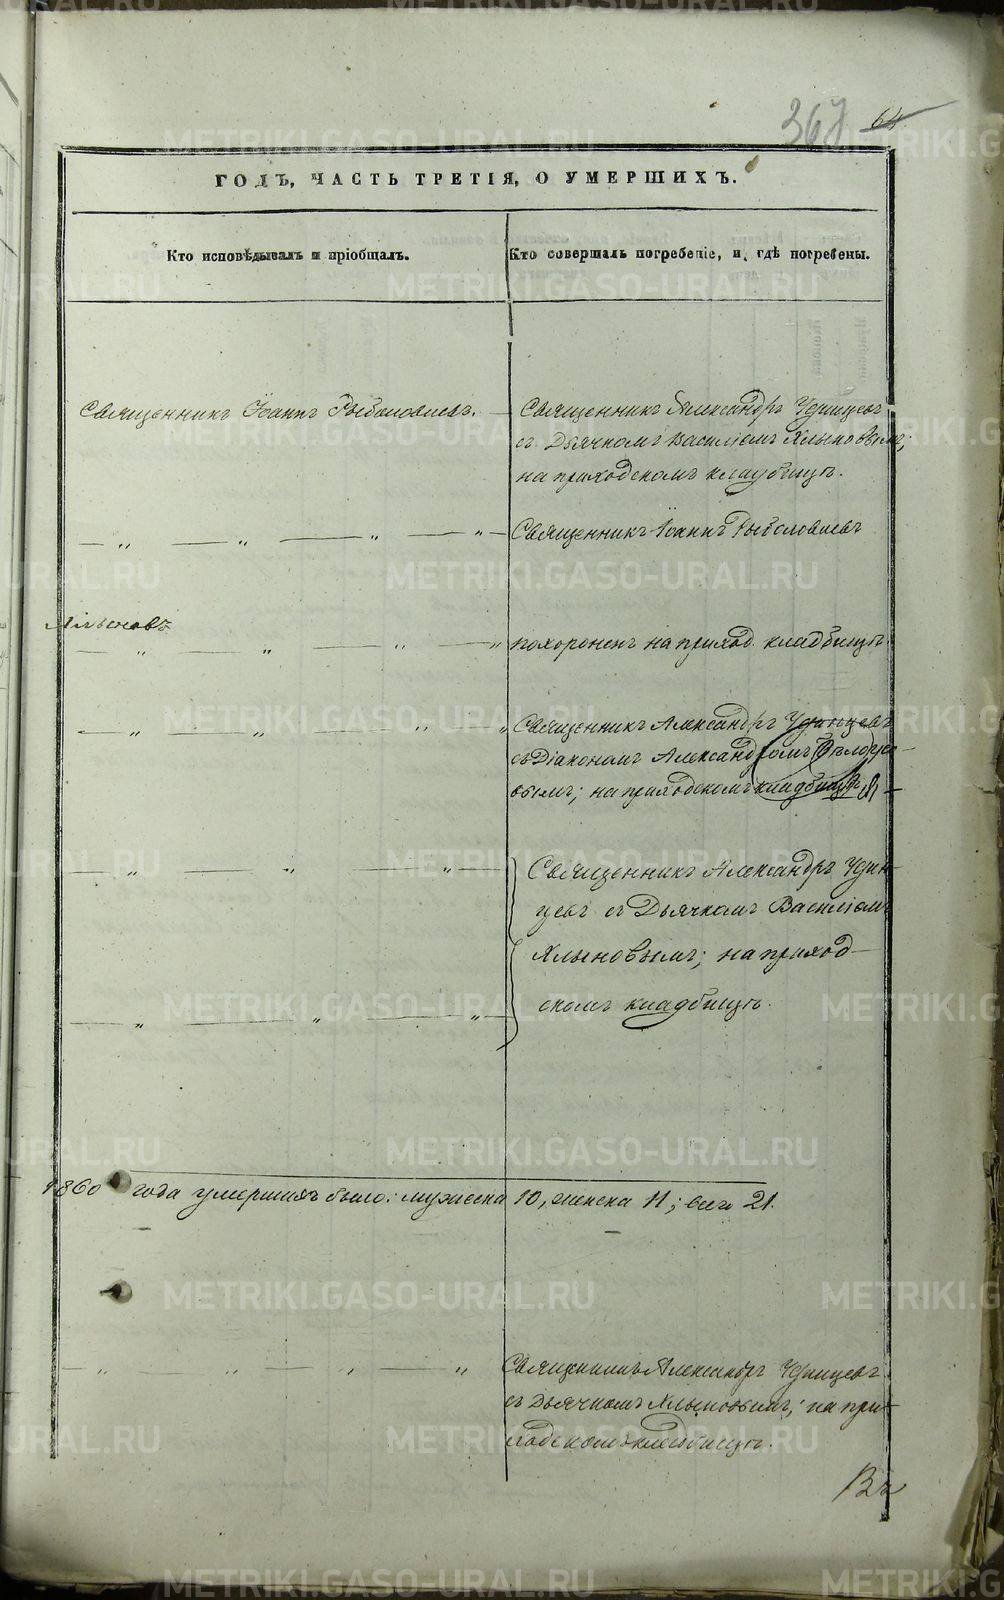 367 64
ГОДЪ, ЧАСТЬ ТРЕТІЯ, О УМЕРШИХЪ.
Кто исповѣдывалъ и пріобщалъ.
Кто совершалъ погребеніе, и гдѣ погребены.
Священникъ Іоаннъ Рыболовлевъ.
Священникъ Александръ Удинцевъ
съ Дьячкомъ Василіемъ Хлыновымъ;
на приходскомъ кладбищѣ.
— „ — „ — „ — „ —
Священникъ Іоаннъ Рыболовлевъ
— „ — „ — „ — „
похороненъ на приход. кладбищѣ.
— „ — „ — „ — „
Священникъ Александръ Удинцевъ
съ Діакономъ Александромъ
вымъ; на приходскомъ кладбищѣ.
— „ — „ — „ —
Священникъ Александръ Удин-
цевъ съ Дьячкомъ Василіемъ
Хлыновымъ; на приход-
скомъ кладбищѣ.
— „ — „ — „
1860 года умершихъ было: мужеска 10, женска 11; всего 21.
— „ „ — „ — „
Священникъ Александръ Удинцевъ
съ Дьячкомъ Хлыновымъ; на при-
ходскомъ кладбищѣ.
Въ
METRIKI.GASO-URAL.RU